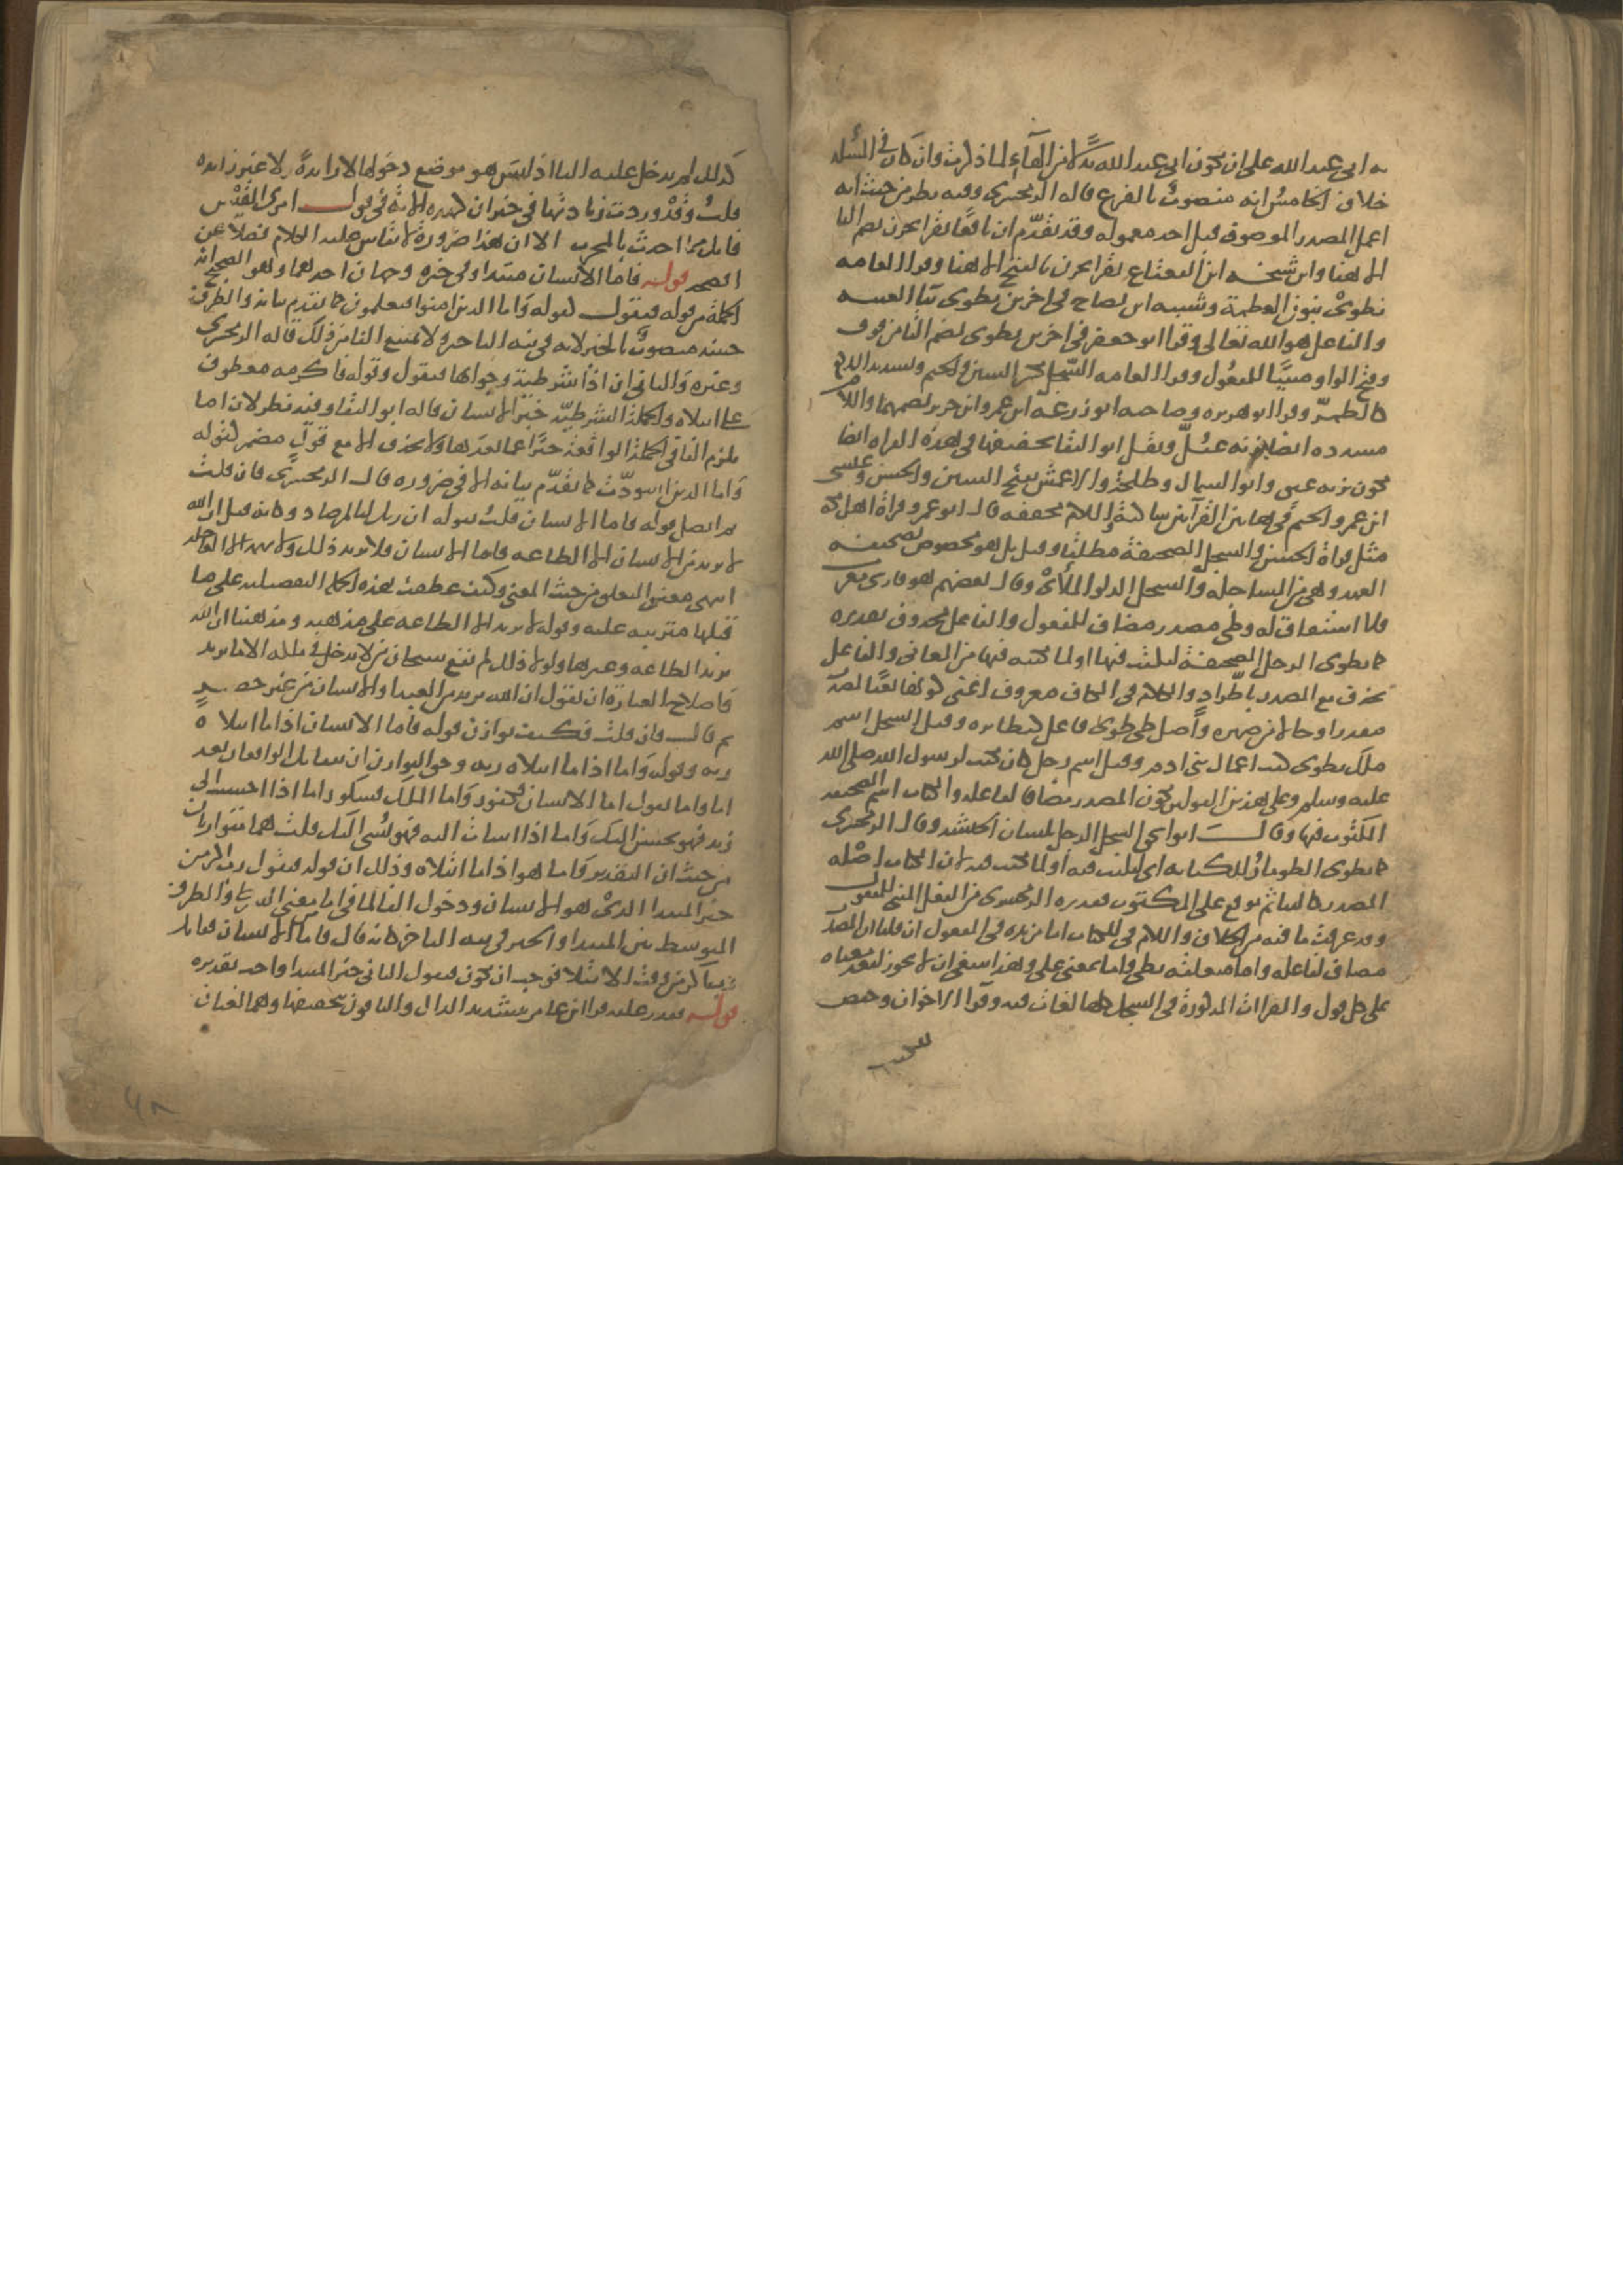 به ابى عبد الله على ان يكون ابى عبد الله بدلا من الهاء لما ذكرت وان كان فى المسله
خلاف الخامس انه منصوب بالفزع قاله الزمخشرى وفيه نظر من حيث انه
اعمل المصدر الموصوف قبل اخذ معموله وقد تقدم ان نافعا يقرا يحزن بضم اليا
الا هنا وان شيخه ابن القعقاع يقرا يحزن بالفتح الا هنا وقرا العامه
نطوى بنون العظمة وشيبه ابن نصاح فى اخرين يطوى بيا الغيبه
والفاعل هو الله تعالى وقرا ابو جعفر فى اخرين تطوى بضم التا من فوق
وفتح الواو مبنيا للمفعول وقرا العامه السجل بكسر السين والجيم وتشديد اللام
كالطمر وقرا ابو هريره وصاحبه ابو زرعه ابن عمرو ابن جرير بضمهما واللام
مشدده ايضا بزنه عتل ونقل ابو البقا تخفيفها فى هذه القراه ايضا
فتكون بزنه عنق وابو السمال وطلحة والاعمش بفتح السين والحسن وعيسى
ابن عمر والجيم فى هاتين القراتين ساكنة واللام مخففه قال ابو عمرو قراة اهل مكه
مثل قراة الحسن والسجل الصحيفة مطلقا وقيل بل هو مخصوص بصحيفه
العهد وهى من المساجله والسجل الدلو الملأى وقال بعضهم هو فارسى معرب
فلا اشتقاق له وطى مصدر مضاف للمفعول والفاعل محذوف تقديره
كما يطوى الرجل الصحيفة ليكتب فيها او لما يكتبه فيها من المعانى والفاعل
يحذف مع المصدر باطراد والكلام فى الكاف معروف اعنى كونها نعتا لمصدر
مقدر او حالا من ضميره واصل طى طوى فاعل كنظايره وقيل السجل اسم
ملك يطوى كتب اعمال بنى ادم وقيل اسم رجل كان يكتب لرسول الله صلى الله
عليه وسلم وعلى هذين القولين يكون المصدر مضافا لفاعله والكتاب اسم الصحيفه
المكتوب فيها وقال ابو اسحق السجل الرجل بلسان الحبشه وقال الزمخشرى
كما يطوى الطومار للكتابه اى ليكتب فيه او لما يكتب فيه لان الكتاب اصله
المصدر كالبنا ثم يوقع على المكتوب فقدره الزمخشرى من الفعل المبنى للمفعول
وقد عرفت ما فيه من الخلاف واللام فى للكتاب اما مزيده فى المفعول ان قلنا ان المصدر
مضاف لفاعله واما متعلقه بطى واما بمعنى على وهذا ينبغى ان لا يجوز لبعد معناه
على كل قول والقراات المذكورة فى السجل كلها لغات فيه وقرا الاخوان وحفص
للكتب
كذلك لم يدخل عليه البا اذ ليس هو موضع دخولها لا زايدة ولا غير زايده
قلت وقد وردت زيادتها فى خبر ان كهذه الاية فى قول امرى القيس
فانك مما احدثت بالمجرب الا ان هذا ضرورة لا يقاس عليه الكلام فضلا عن
افصحه قوله فاما الانسان مبتدا وفى خبره وجهان احدهما وهو الصحيح انه
الجملة من قوله فيقول كقوله واما الذين امنوا فيعلمون كما تقدم بيانه والظرف
حينئذ منصوب بالخبر لانه فى نيه التاخير ولا تمنع الفا من ذلك قاله الزمخشرى
وغيره والثانى ان اذا شرطية وجوابها فيقول وقوله فاكرمه معطوف
على ابتلاه والجملة الشرطيه خبر الانسان قاله ابو البقا وفيه نظر لان اما
يلزم الفا فى الجملة الواقعة خبرا عما بعدها ولا يحذف الا مع قول مضمر كقوله
واما الذين اسودت كما تقدم بيانه الا فى ضروره قال الزمخشرى فان قلت
بم اتصل قوله فاما الانسان قلت بقوله ان ربك لبالمرصاد وكانه قيل ان الله
لا يريد من الانسان الا الطاعه فاما الانسان فلا يريد ذلك ولا يهمه الا العاجله
انتهى معنى التعلق من حيث المعنى وكيف عطفت هذه الجمل التفصيليه على ما
قبلها مترتبه عليه وقوله لا يريد الا الطاعه على مذهبه ومذهبنا ان الله
يريد الطاعه وغيرها ولولا ذلك لم تقع سبحان من لا يدخل فى ملكه الا ما يريد
فاصلاح العبارة ان يقول ان الله يريد من العبد او الانسان من غير حصر
ثم قال فان قلت فكيف توازن قوله فاما الانسان اذا ما ابتلاه
ربه وقوله واما اذا ما ابتلاه ربه وحق التوازن ان يتقابل الواقعان بعد
اما واما تقول اما الانسان فكفور واما الملك فشكور اما اذا احسنت الى
زيد فهو محسن اليك واما اذا اسات اليه فهو مسى اليك قلت هما متوازيان
من حيث ان التقدير واما هو اذا ما ابتلاه وذلك ان قوله فيقول ربى اكرمن
خبر المبتدا الذى هو الانسان ودخول الفا لما فى اما من معنى الشرط والظرف
المتوسط بين المبتدا والخبر فى نيه التاخر كانه قال فاما الانسان فقايل
ربى اكرمن وقت الابتلا فوجب ان يكون فيقول الثانى خبرا لمبتدا واحد تقديره
قوله فقدر عليه قرا ابن عامر بتشديد الدال والباقون بتخفيفها وهما لغتان